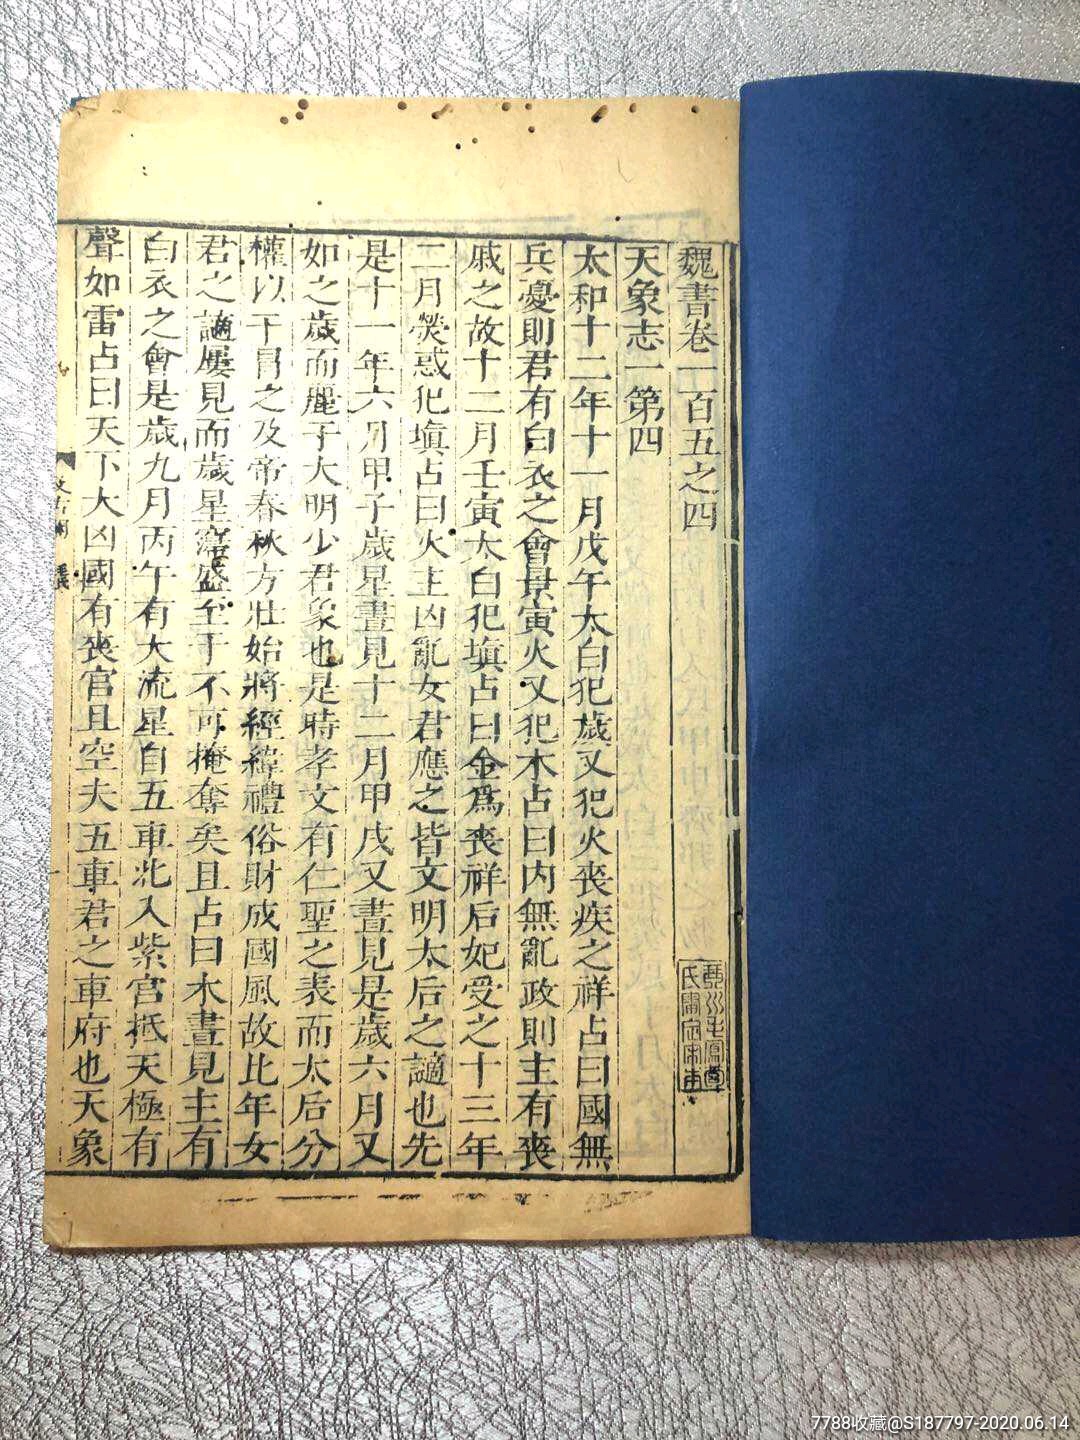 魏書卷一百五之四
天象志一第四
太和十二年十一月戊午太白犯歲又犯火喪疾之祥占曰國無
兵憂則君有白衣之會景寅火又犯木占曰內無亂政則主有喪
戚之故十二月壬寅太白犯填占曰金爲喪祥后妃受之十三年
二月熒惑犯填占曰火主凶亂女君應之皆文明太后之謫也先
是十一年六月甲子歲星晝見十二月甲戌又晝見是歲六月又
如之歲而麗于大明少君象也是時孝文有仁聖之表而太后分
權以干冒之及帝春秋方壯始將經緯禮俗財成國風故比年女
君之謫屢見而歲星寖盛至于不可掩奪矣且占曰木晝見主有
白衣之會是歲九月丙午有大流星自五車北入紫宮抵天極有
聲如雷占曰天下大凶國有喪宮且空夫五車君之車府也天象
汲古閣
毛氏
7788收藏@S187797-2020.06.14